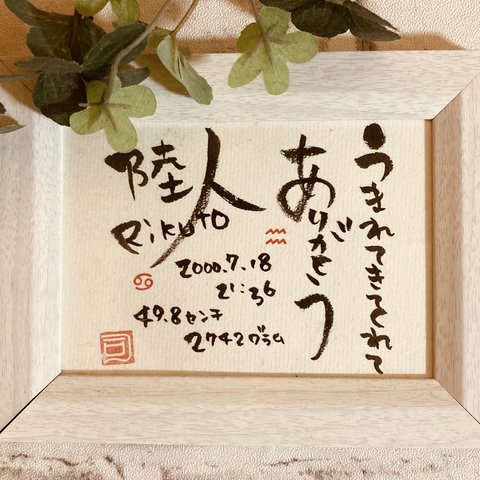 うまれてきてくれて
ありがとう
陸人
Rikuto
2000.7.18
21:36
49.8センチ
2742グラム